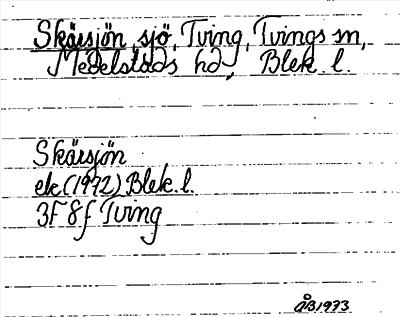 Skärsjön, sjö, Tving, Tvings sn,
Medelstads hd, Blek. l.
Skärsjön
ek. (1972) Blek. l.
3F 8f Tving
ÅB 1973